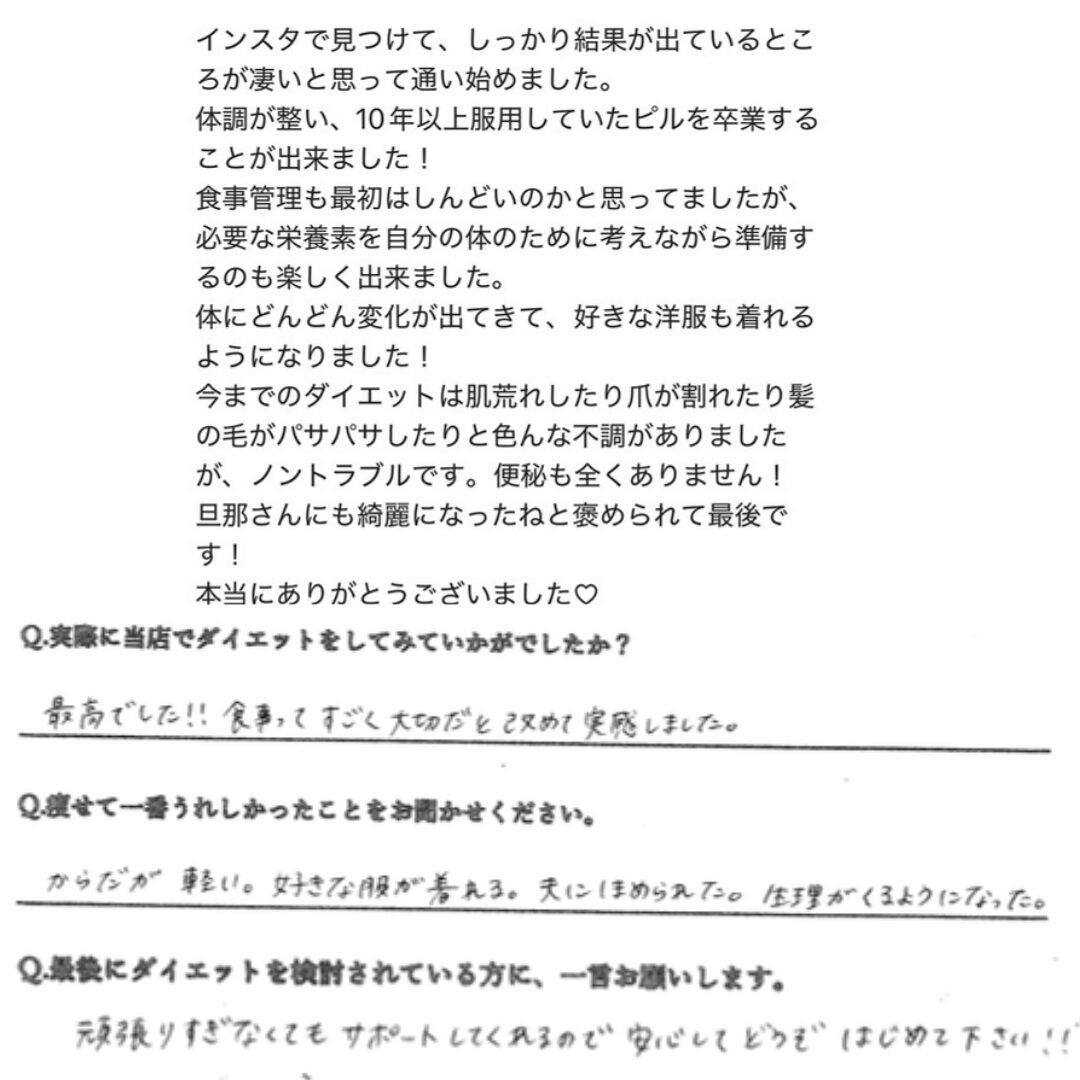 インスタで見つけて、しっかり結果が出ているとこ
ろが凄いと思って通い始めました。
体調が整い、10年以上服用していたピルを卒業する
ことが出来ました！
食事管理も最初はしんどいのかと思ってましたが、
必要な栄養素を自分の体のために考えながら準備す
るのも楽しく出来ました。
体にどんどん変化が出てきて、好きな洋服も着れる
ようになりました！
今までのダイエットは肌荒れしたり爪が割れたり髪
の毛がパサパサしたりと色んな不調がありました
が、ノントラブルです。便秘も全くありません！
旦那さんにも綺麗になったねと褒められて最後で
す！
本当にありがとうございました♡
Q.実際に当店でダイエットをしてみていかがでしたか？
最高でした!! 食事ってすごく大切だと改めて実感しました。
Q.痩せて一番うれしかったことをお聞かせください。
からだが軽い。好きな服が着れる。夫にほめられた。生理がくるようになった。
Q.最後にダイエットを検討されている方に、一言お願いします。
頑張りすぎなくてもサポートしてくれるので安心してどうぞはじめて下さい!!